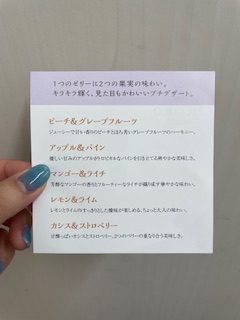 1つのゼリーに2つの果実の味わい。
キラキラ輝く、見た目もかわいいプチデザート。
ピーチ&グレープフルーツ
ジューシーで甘い香りのピーチとほろ苦いグレープフルーツのハーモニー。
アップル&パイン
優しい甘みのアップルがトロピカルなパインを引き立てる爽やかな美味しさ。
マンゴー&ライチ
芳醇なマンゴーの香りとフルーティーなライチが織り成す華やかな味わい。
レモン&ライム
レモンとライムのすっきりとした酸味が楽しめる、ちょっと大人の味わい。
カシス&ストロベリー
甘酸っぱいカシスとストロベリー、2つのベリーの重なり合う美味しさ。